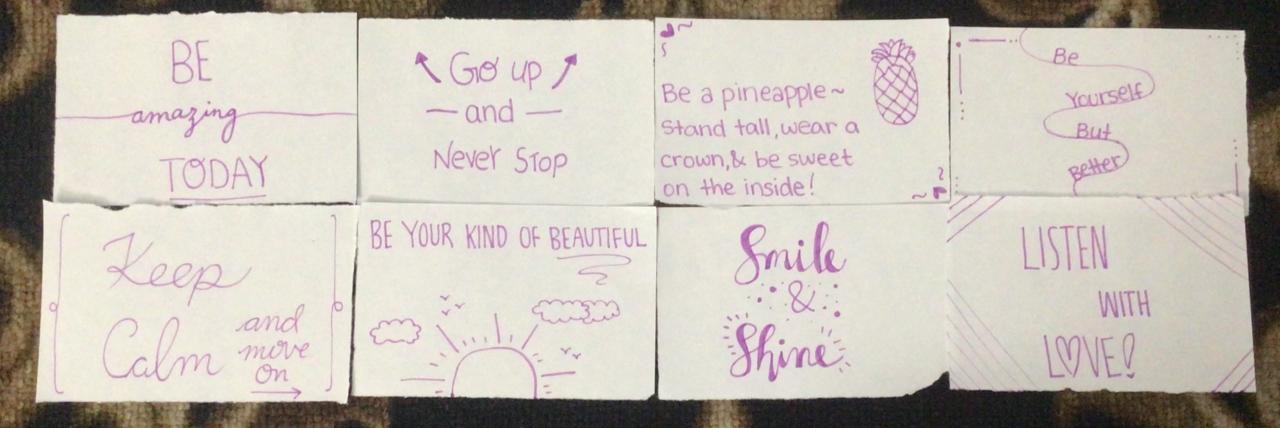 BE
amazing
TODAY
Go up
and
Never Stop
Be a pineapple~
Stand tall, wear a
crown, & be sweet
on the inside!
Be
Yourself
But
Better
Keep
Calm
and
move
on
BE YOUR KIND OF BEAUTIFUL
Smile
&
Shine
LISTEN
WITH
LOVE!